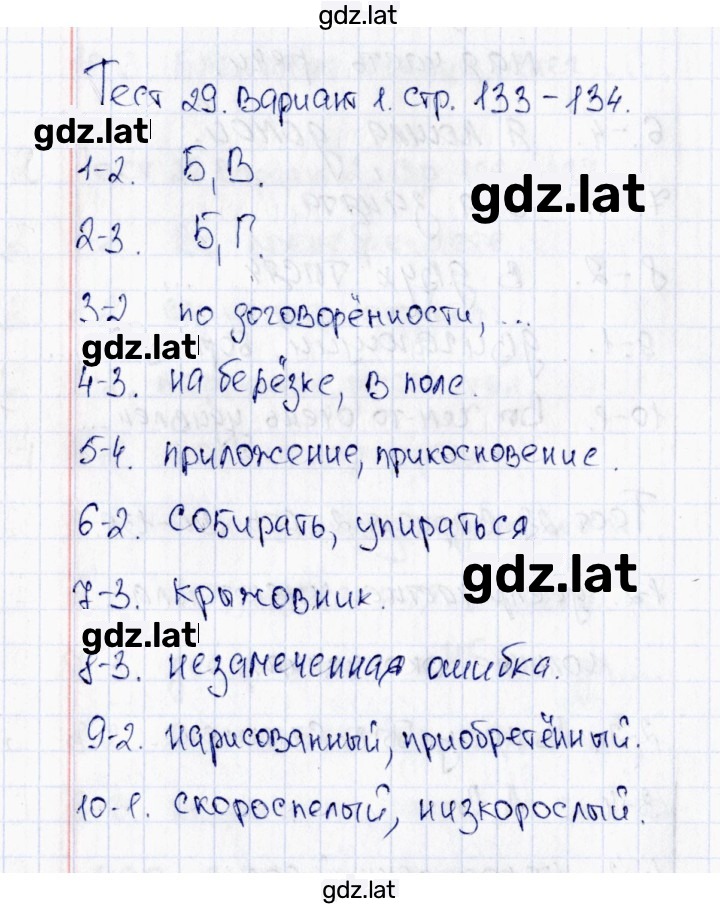 gdz.lat
Тест 29. Вариант 1. стр. 133-134.
gdz.lat
1-2. Б, В.
gdz.lat
2-3. Б, Г.
3-2 по договорённости, ...
gdz.lat
4-3. на берёзке, в поле.
5-4. приложение, прикосновение.
6-2. собирать, упираться
gdz.lat
7-3. крыжовник.
gdz.lat
8-3. незамеченная ошибка.
9-2. нарисованный, приобретённый.
10-1. скороспелый, низкорослый.
gdz.lat